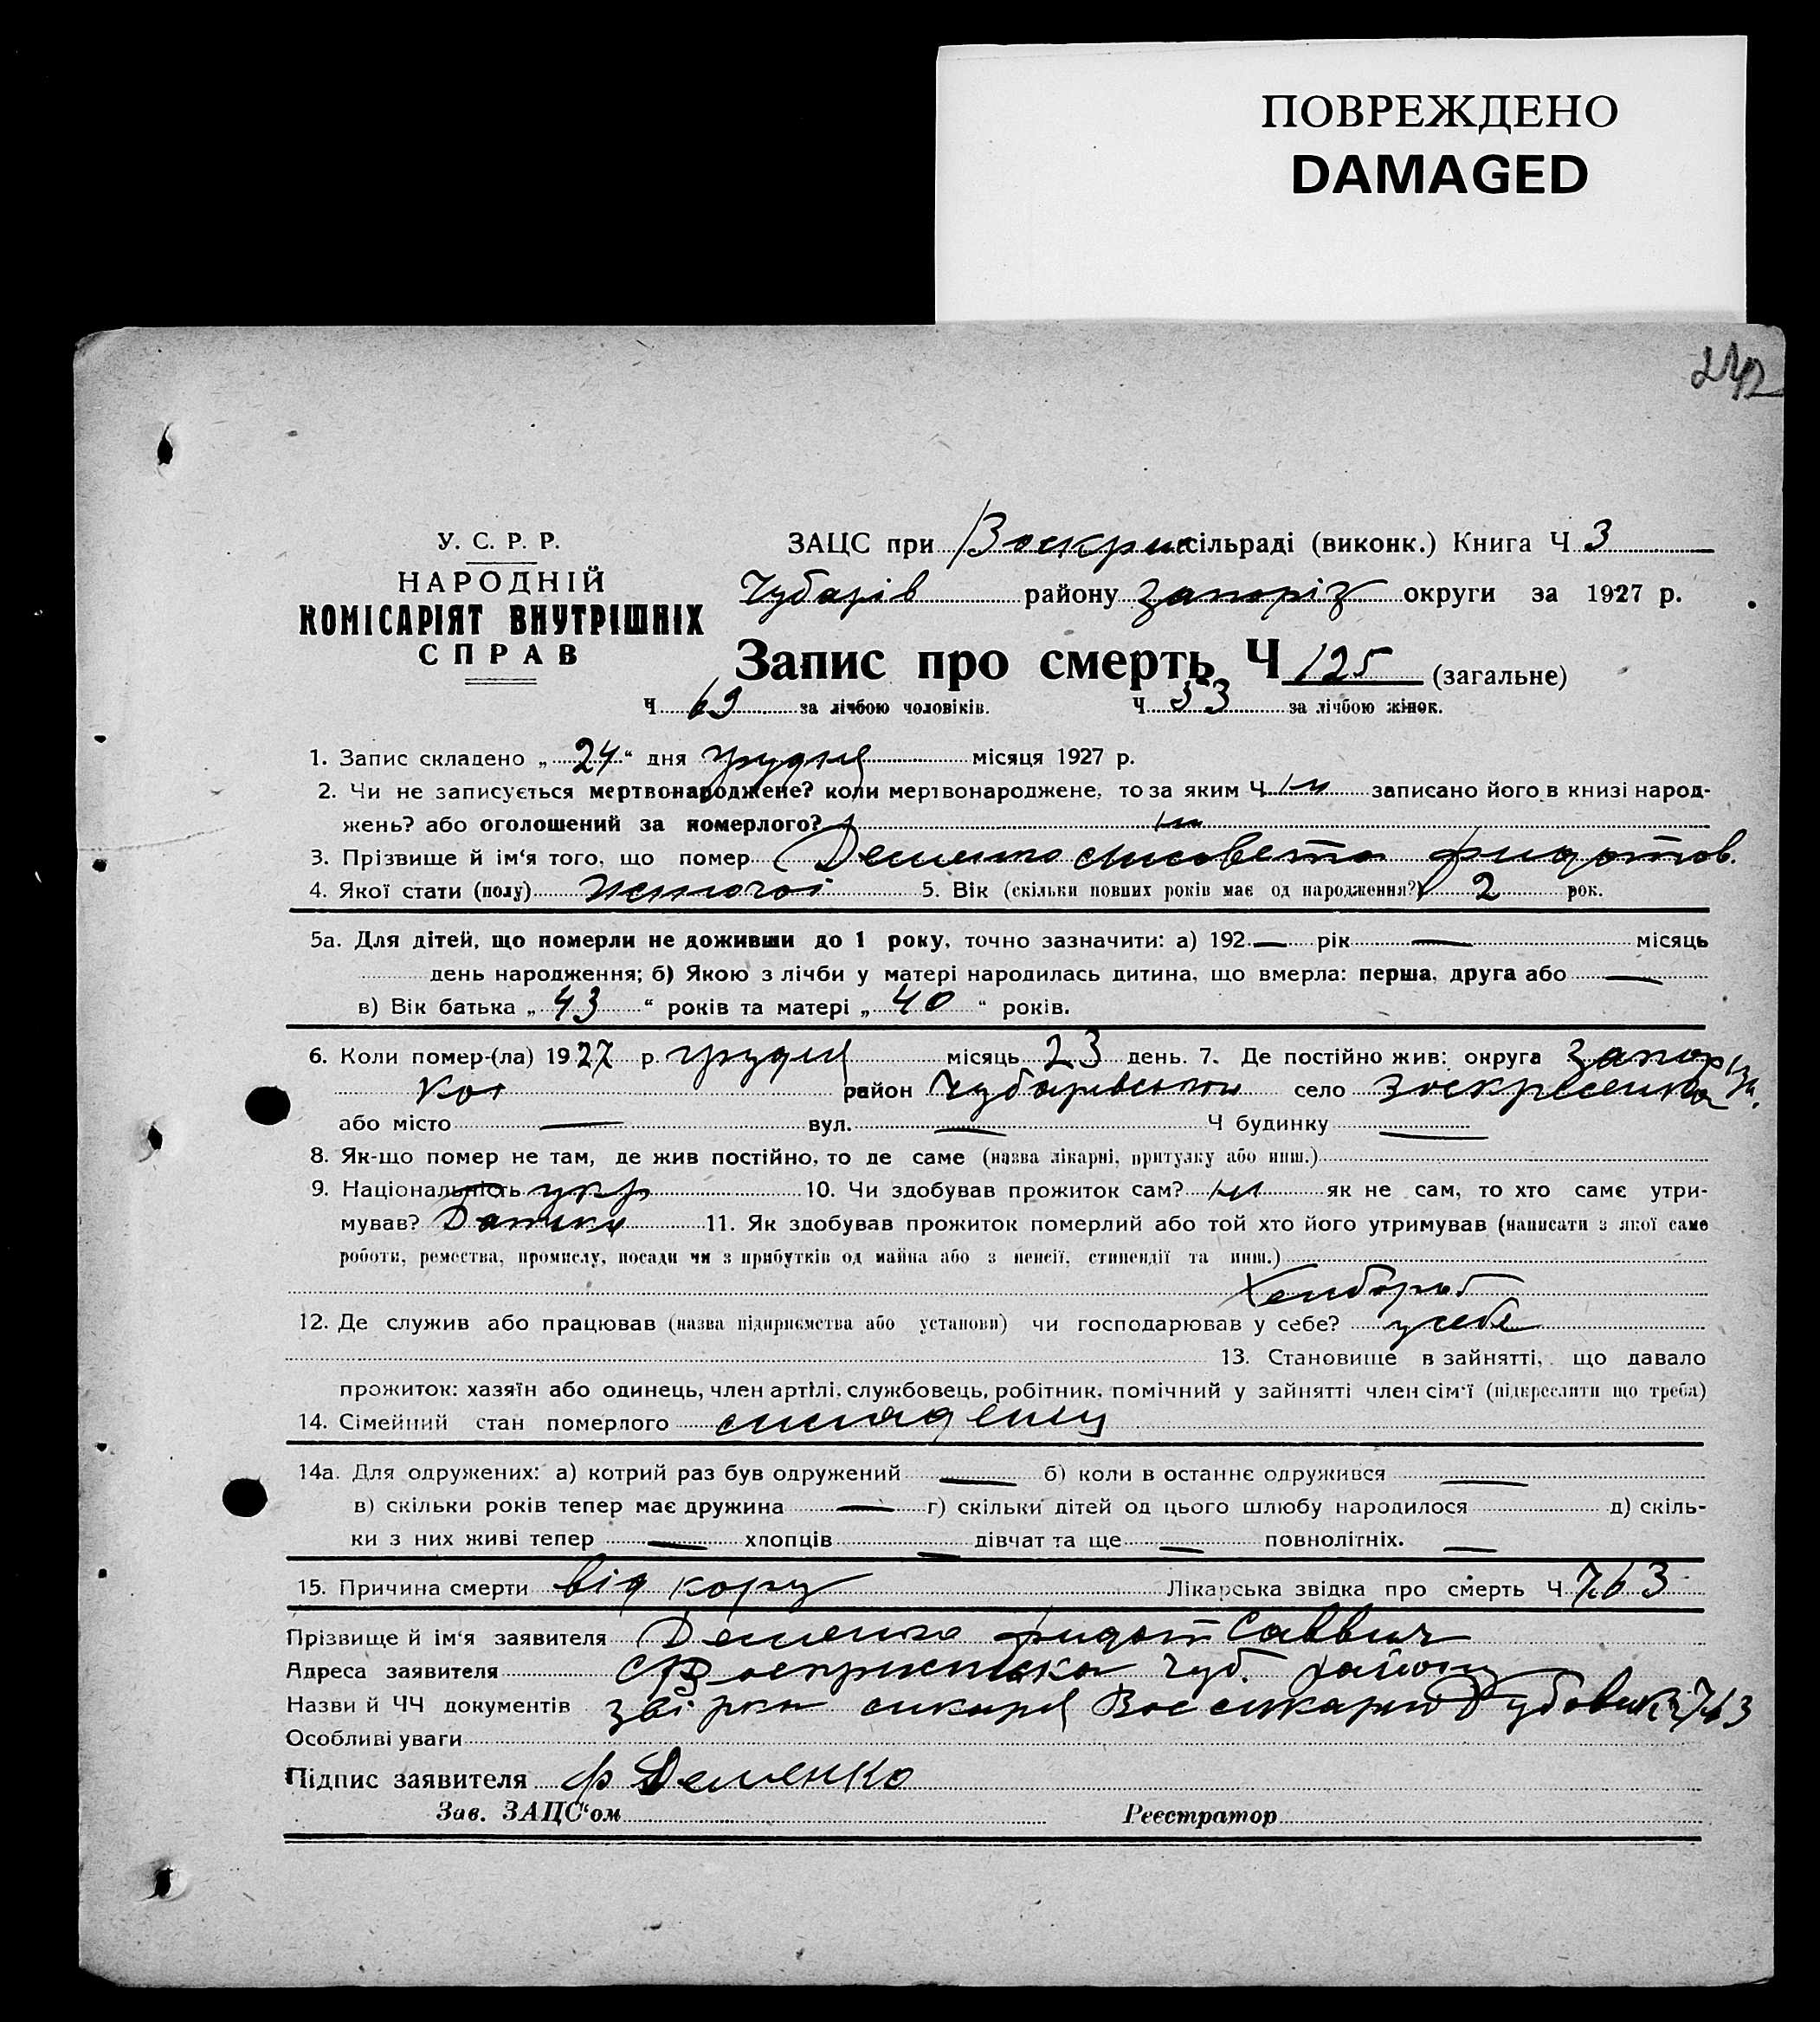 ПОВРЕЖДЕНО
DAMAGED
242
У. С. Р. Р.
НАРОДНІЙ
КОМІСАРІЯТ ВНУТРІШНІХ
СПРАВ
ЗАЦС при Воскрисільраді (виконк.) Книга Ч 3
Чубарів району запоріз округи за 1927 р.
Запис про смерть Ч 125 (загальне)
Ч 63 за лічбою чоловіків. Ч 53 за лічбою жінок.
1. Запис складено „ 24 “ дня грудня місяця 1927 р.
2. Чи не записується мертвонароджене? коли мертвонароджене, то за яким Ч ні записано його в книзі народ-
жень? або оголошений за померлого? ні
3. Прізвище й ім‘я того, що помер
4. Якої стати (полу) жіночоі 5. Вік (скільки повних років має од народження?) 2 рок.
5а. Для дітей, що померли не доживши до 1 року, точно зазначити: а) 192 — рік — місяць
день народження; б) Якою з лічби у матері народилась дитина, що вмерла: перша, друга або —
в) Вік батька „ 43 “ років та матері „ 40 “ років.
6. Коли помер-(ла) 1927 р. грудня місяць 23 день. 7. Де постійно жив: округа запоріз
кої район Чубарівського село Воскресенка
або місто — вул. — Ч будинку —
8. Як-що помер не там, де жив постійно, то де саме (назва лікарні, притулку або инш.)
9. Національність укр 10. Чи здобував прожиток сам? ні як не сам, то хто саме утри-
мував? Батько 11. Як здобував прожиток померлий або той хто його утримував (написати з якої саме
роботи, ремества, промислу, посади чи з прибутків од майна або з пенсії, стипендії та инш.)
Хлибороб
12. Де служив або працював (назва підприємства або установи) чи господарював у себе? у себе
13. Становище в зайнятті, що давало
прожиток: хазяїн або одинець, член артілі, службовець, робітник, помічний у зайнятті член сім‘ї (підкреслити що треба)
14. Сімейний стан померлого
14а. Для одружених: а) котрий раз був одружений — б) коли в останнє одружився —
в) скільки років тепер має дружина — г) скільки дітей од цього шлюбу народилося д) скіль-
ки з них живі тепер — хлопців — дівчат та ще — повнолітніх. —
15. Причина смерти від кору Лікарська звідка про смерть Ч 763
Прізвище й ім‘я заявителя Саввич
Адреса заявителя Чуб. району
Назви й ЧЧ документів 763
Особливі уваги
Підпис заявителя Ф Деменко
Зав. ЗАЦС‘ом Реєстратор